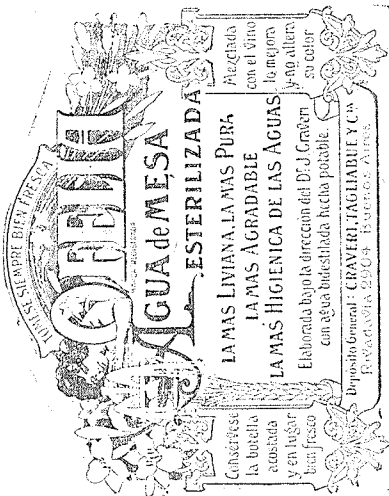 TOMESE SIEMPRE BIEN FRESCA
AGUA de MESA
ESTERILIZADA
LA MAS LIVIANA, LA MAS PURA
LA MAS AGRADABLE
LA MAS HIGIENICA DE LAS AGUAS
Elaborada bajo la direccion del Dr. J. Craveri
con agua bidestilada hecha potable.
Deposito General: CRAVERI, TAGLIABUE Y Cia
Rivadavia 2904 Buenos Aires
Conservese
la botella
acostada
y en lugar
bien fresco
Mezclada
con el Vino
lo mejora
y no altera
su color